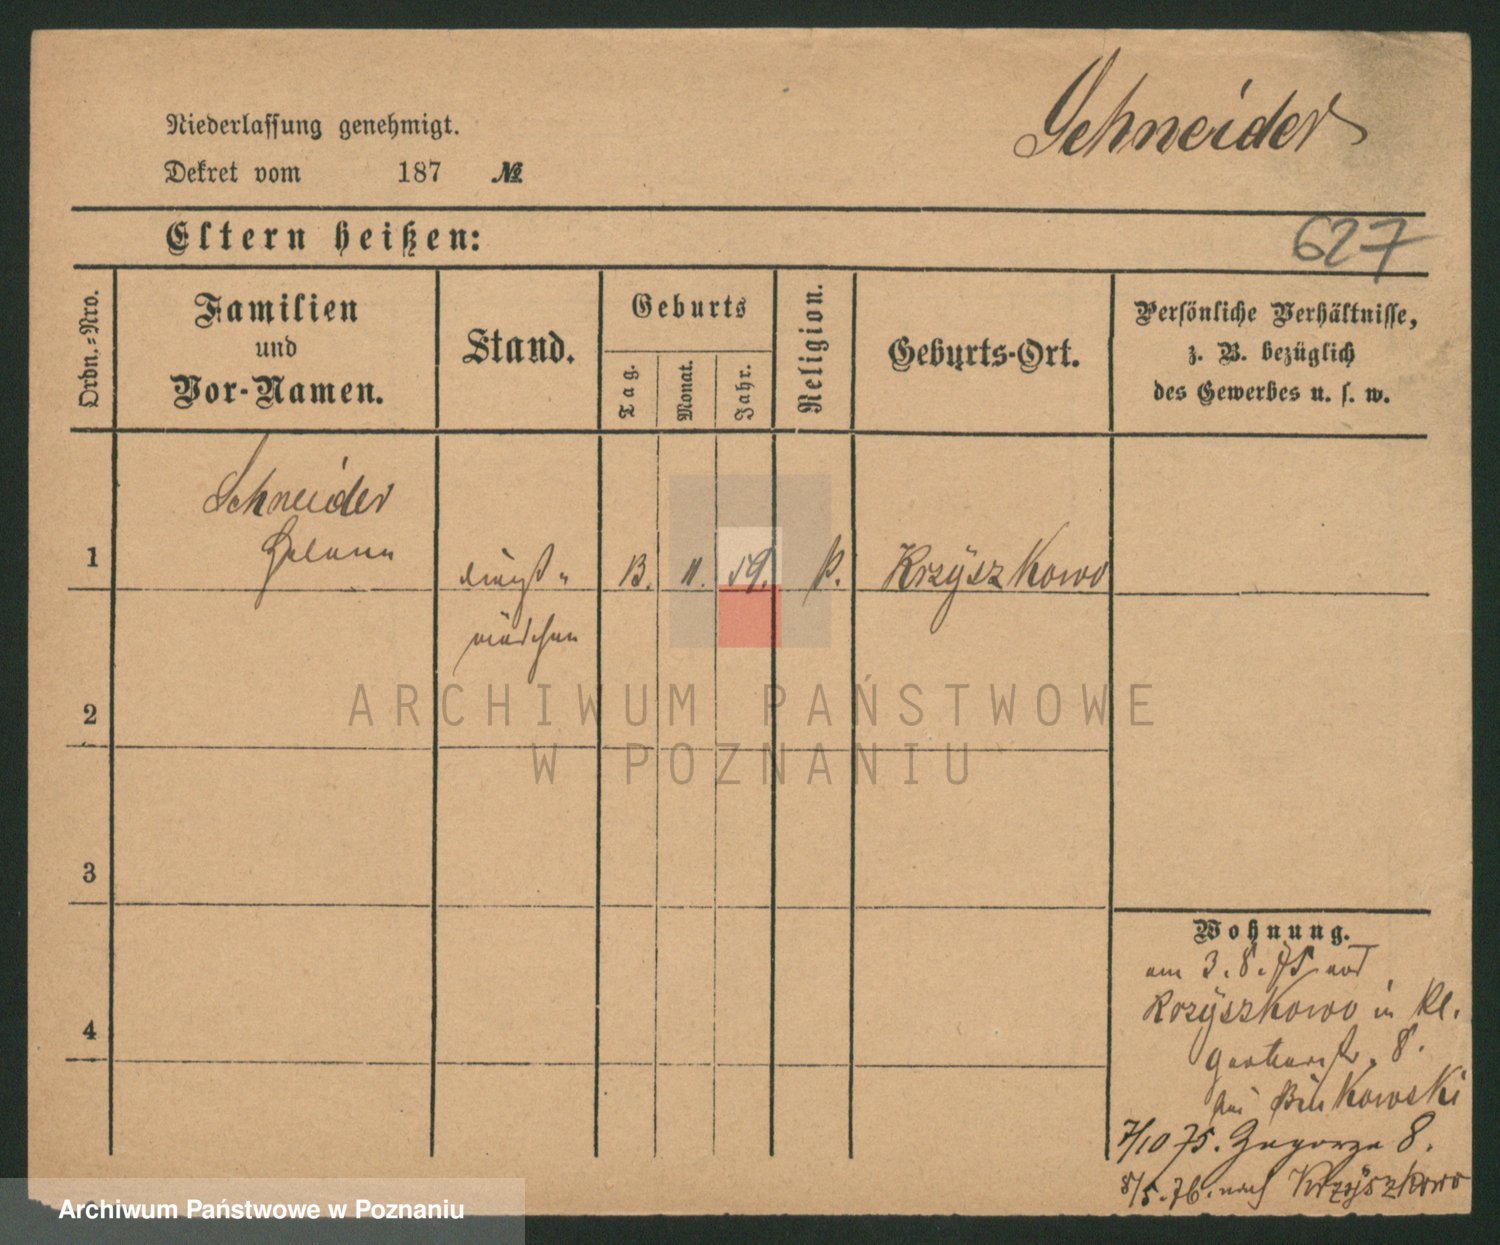 Schneider
Niederlassung genehmigt.
Dekret vom 187 №
Eltern heißen:
627
Ordn.=Nro.
Familien
und
Vor-Namen.
Stand.
Geburts
Tag.
Monat.
Jahr.
Religion.
Geburts-Ort.
Persönliche Verhältnisse,
z. B. bezüglich
des Gewerbes u. s. w.
Schneider
Helena
1 dienst= 11. 59. Krzÿszkowo
mädchen
2
ARCHIWUM PAŃSTWOWE
W POZNANIU
3
4
Wohnung.
am 3.8.75 aus
Krzÿszkowo in Kl.
Gerberstr. 8.
bei Binkowski
7/10 75. Zagorze 8.
5.76. nach Krzÿszkowo
Archiwum Państwowe w Poznaniu